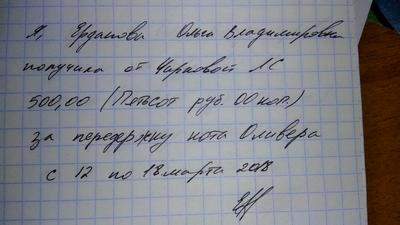 Я, Урдасова Ольга Владимировна
получила от Чарковой ЛС
500,00 (Пятьсот руб. 00 коп.)
за передержку кота Оливера
с 12 по 18 марта 2018